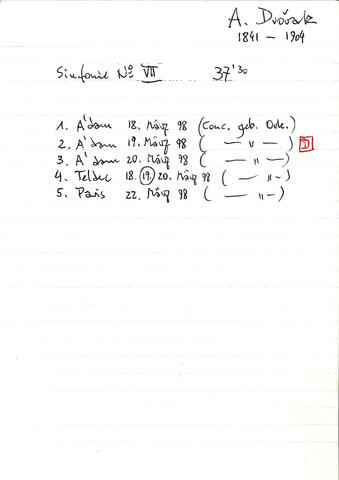 A. Dvořak
1841 – 1904
Sinfonie No VII 37'30
1. A'dam 18. März 98 (Conc. geb. Ork.)
2. A'dam 19. März 98 ( — " — ) D
3. A'dam 20. März 98 ( — " — )
4. Teldec 18. 19. 20. März 98 ( — " — )
5. Paris 22. März 98 ( — " — )